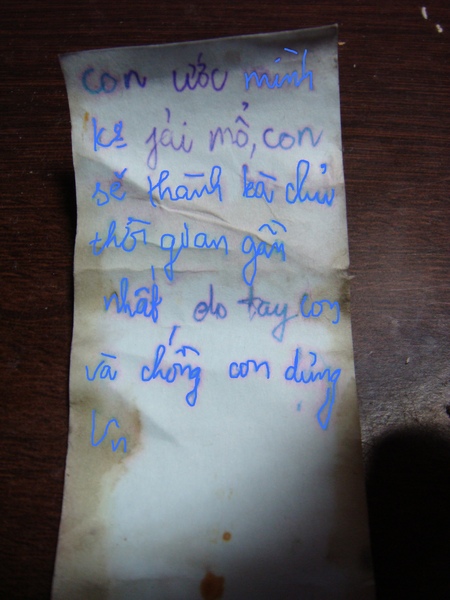 con ước mình
k° jải mổ, con
sẽ thành bà chủ
thời gian gần
nhất, do tay con
và chồng con dựng
lên